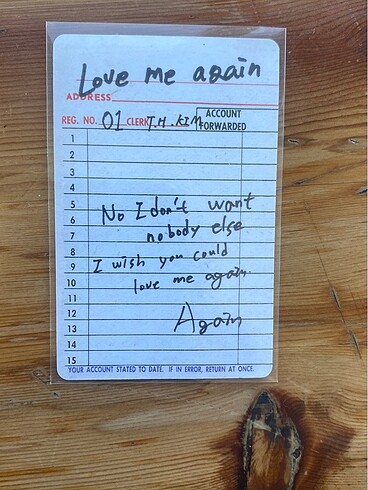 Love me again
ADDRESS
REG. NO. 01 CLERK T.H. KIM ACCOUNT FORWARDED
1
2
3
4
5
6 No I don't want
7 nobody else
8
9 I wish you could
10 love me again.
11
12
13 Again
14
15
YOUR ACCOUNT STATED TO DATE. IF IN ERROR, RETURN AT ONCE.